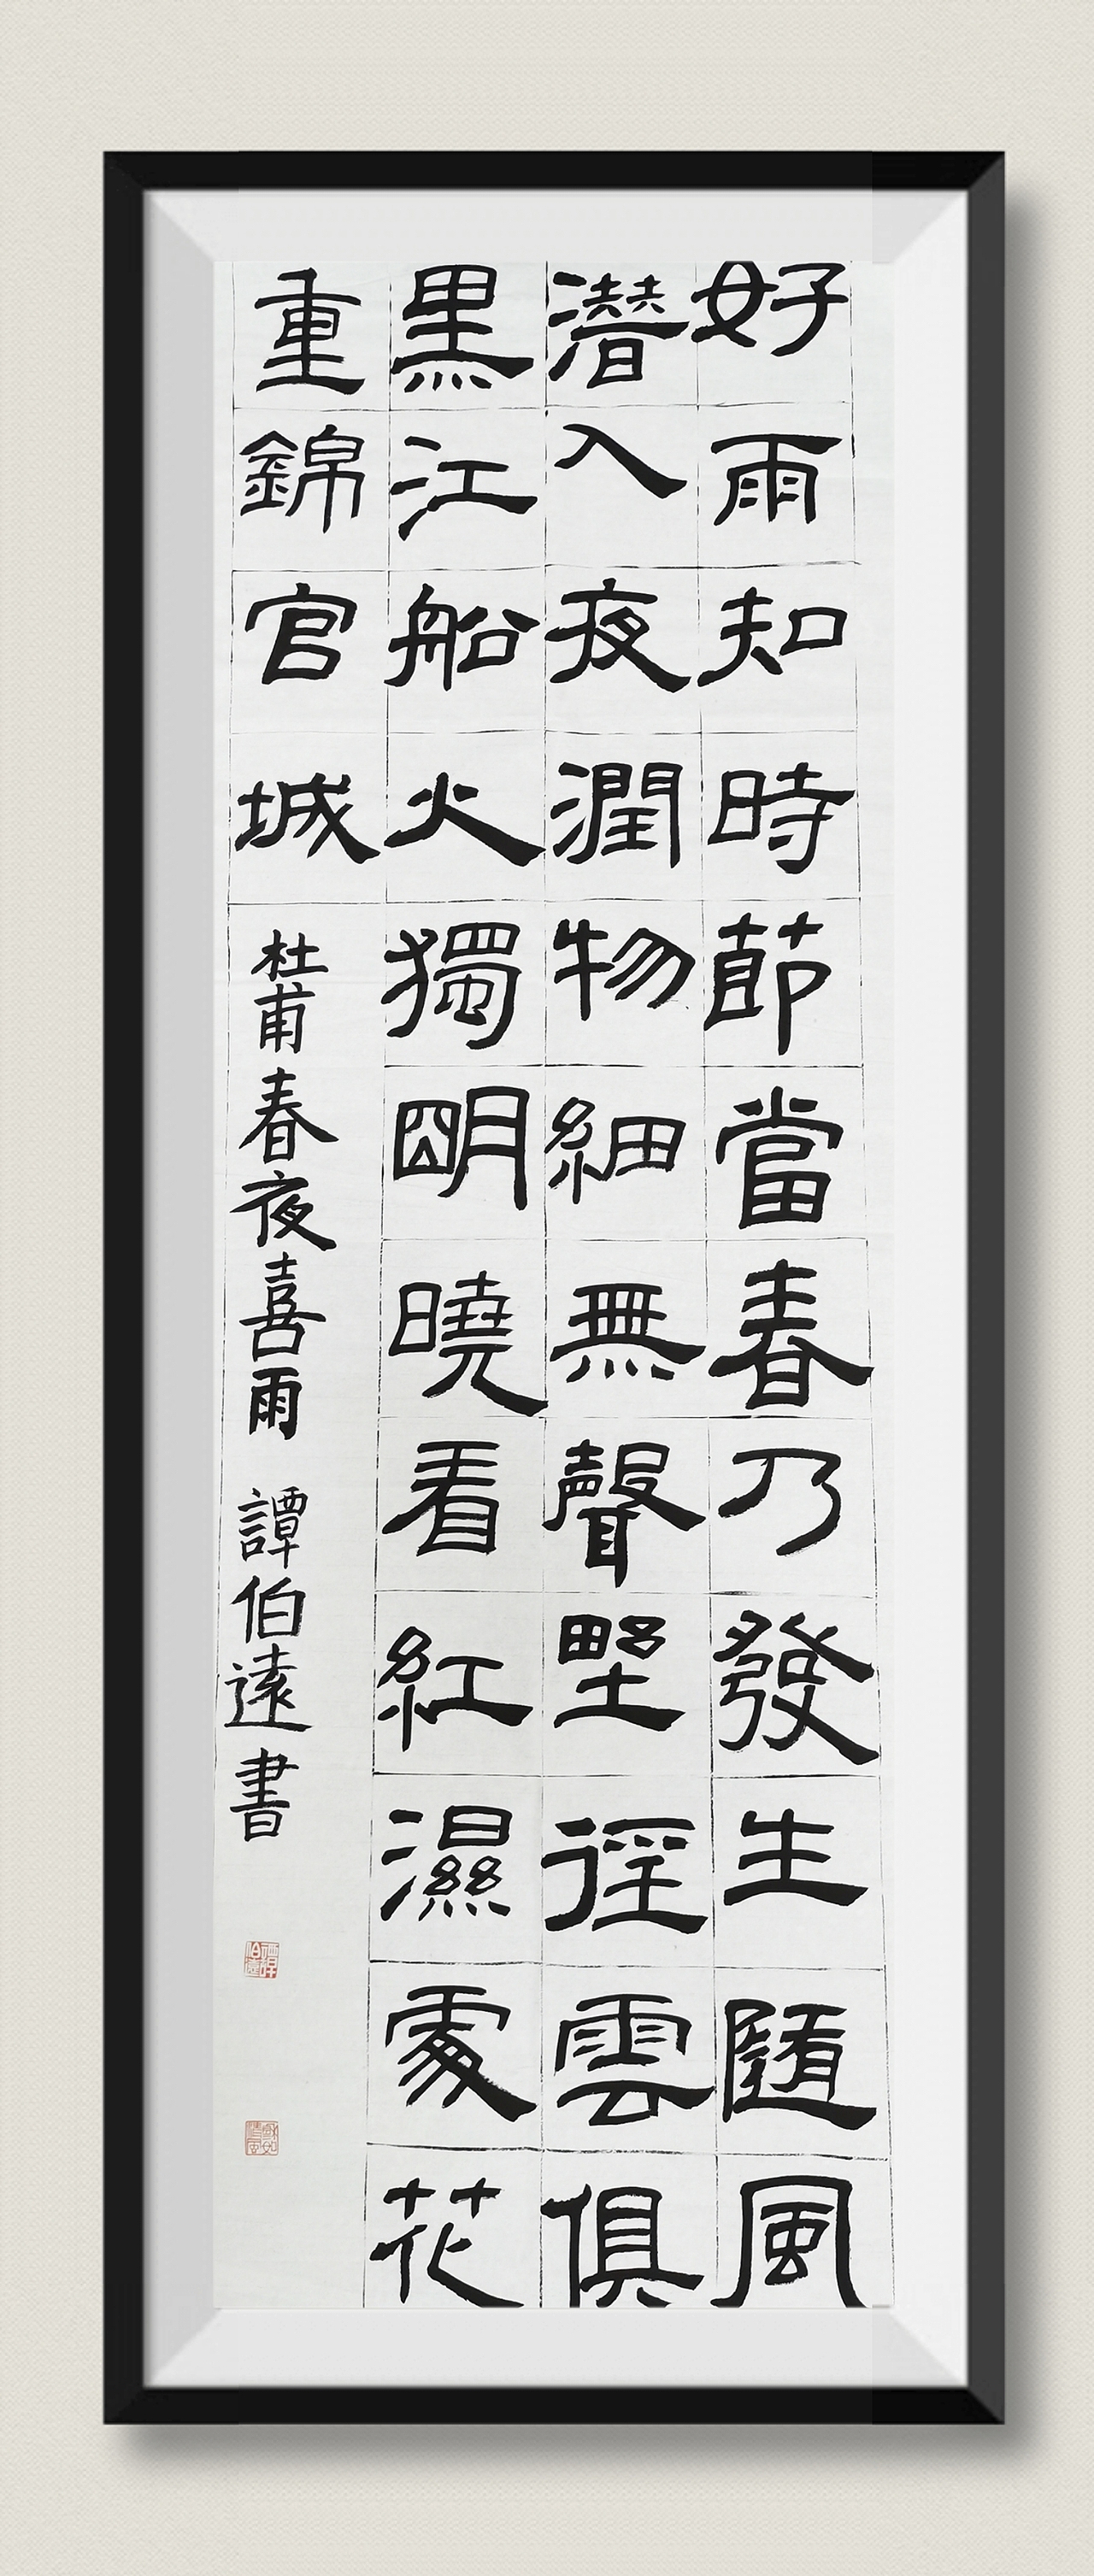 好雨知時節當春乃發生隨風
潛入夜潤物細無聲野徑雲俱
黑江船火獨朙曉看紅濕處花
重錦官城
杜甫春夜喜雨 譚伯遠書
譚伯遠